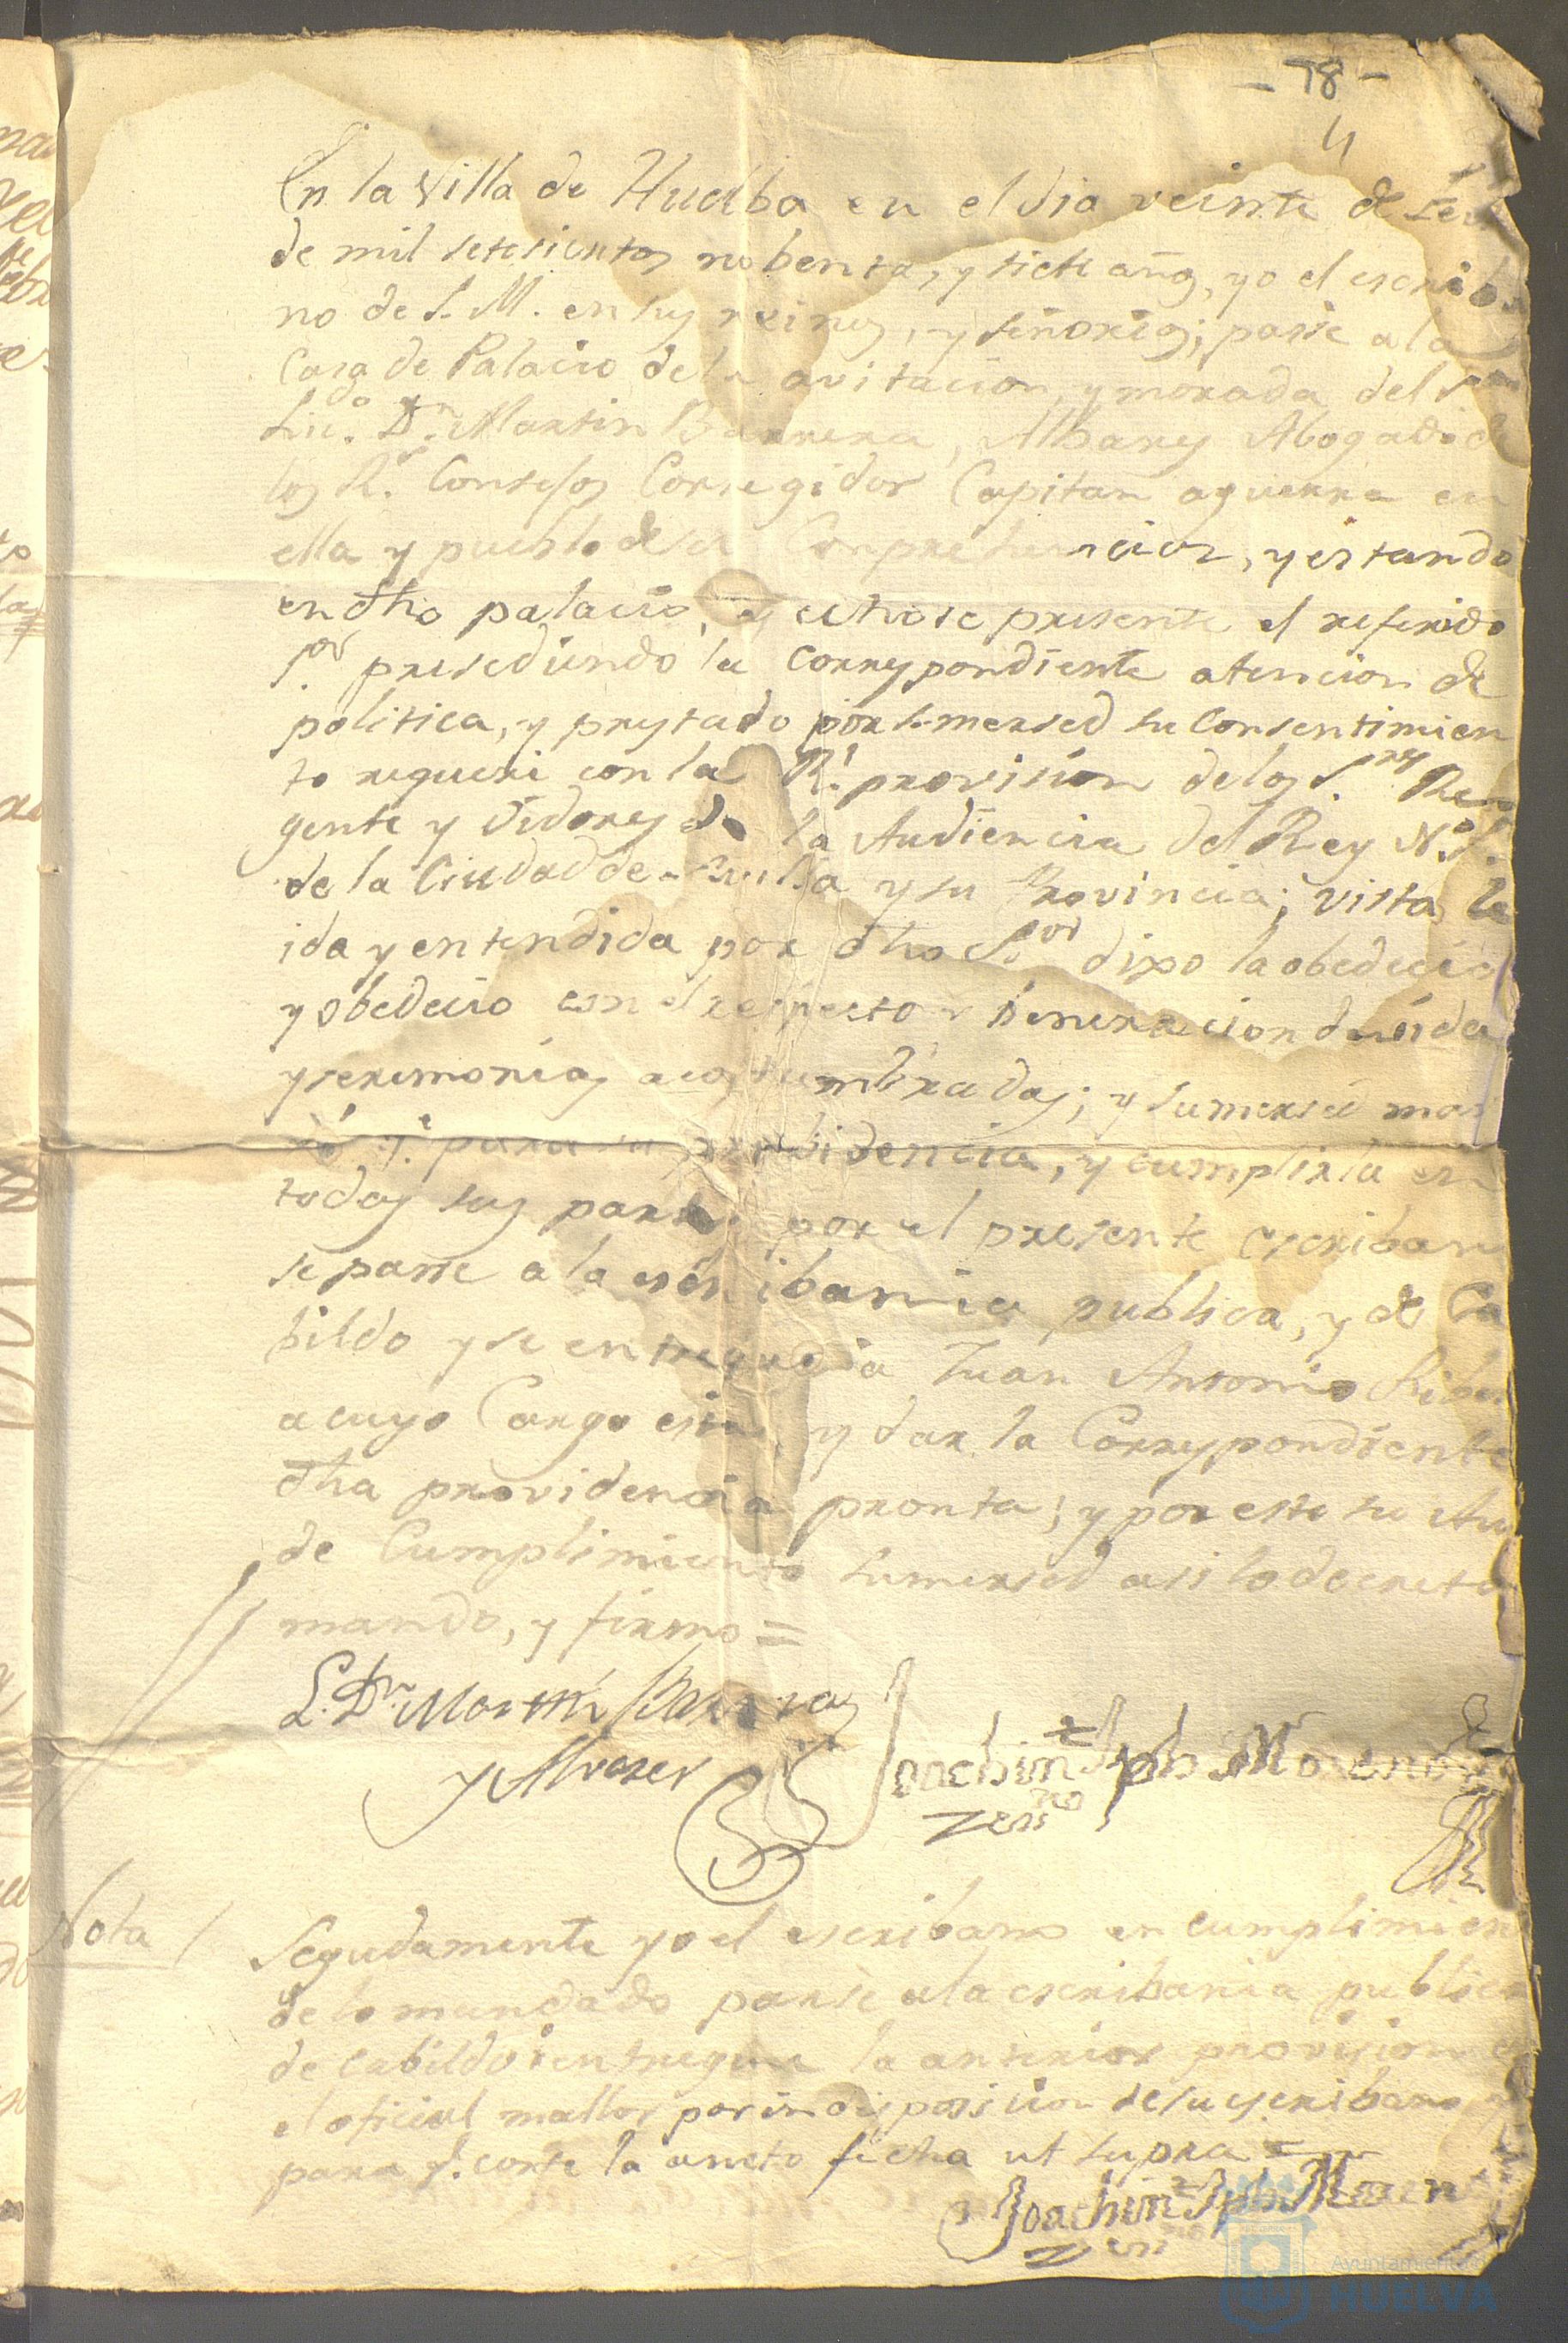 - 78 -
4
En la Villa de Huelba en el dia veinte de
de mil setesientos nobenta, y siete añs, yo el escriba
no de S. M. en sus reinos, y señorios; passe a la
Casa de Palacio de la avitacion y morada del Sor
Licdo. Dn. Martin Barrera, Albares Abogado de
los Rs. Consejos Corregidor Capitan aguerra en
ella y pueblo de su Conprehencion, y estando
en dho palacio, y echose presente el referido
Sor. presediendo la correspondiente atencion de
politica, y prestado por su mersed su Consentimien
to requeri con la Rl. provision de los Sres. Re
gente y Oidores de la Audiencia del Rey N. S.
de la Ciudad de Sevilla y su Provincia; vista le
ida y entendida por dho Sor. dixo la obedecia
y obedecio con el respecto y beneracion devida
y seremonias acostumbradas; y su mersed man
do q.e para su probidencia, y cumplirla en
todas sus partes por el presente escribano
se passe a la escribania publica, y de Ca
bildo y se entregue a Juan Antonio
a cuyo Cargo esta, y dar la Correspondiente
dha providencia pronta; y por este su Au
de Cumplimiento su mersed asi lo decreto
mando, y firmo =
L. Dn. Martin Barreras
y Alvarez
Joachin Jph Moreno
Nota /
Seguidamente yo el escribano en cumplimien
de lo mandado passe a la escribania publica
de cabildo i entregue la anterior provision
el oficial mallor por indisposicion de su escribano
para q. conste la aneto fecha ut supra =
Joachin Jph Moren
Ayuntamiento de
HUELVA